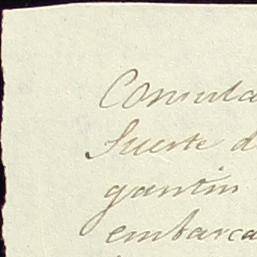 Consula
Suerte d
gantin
embarca